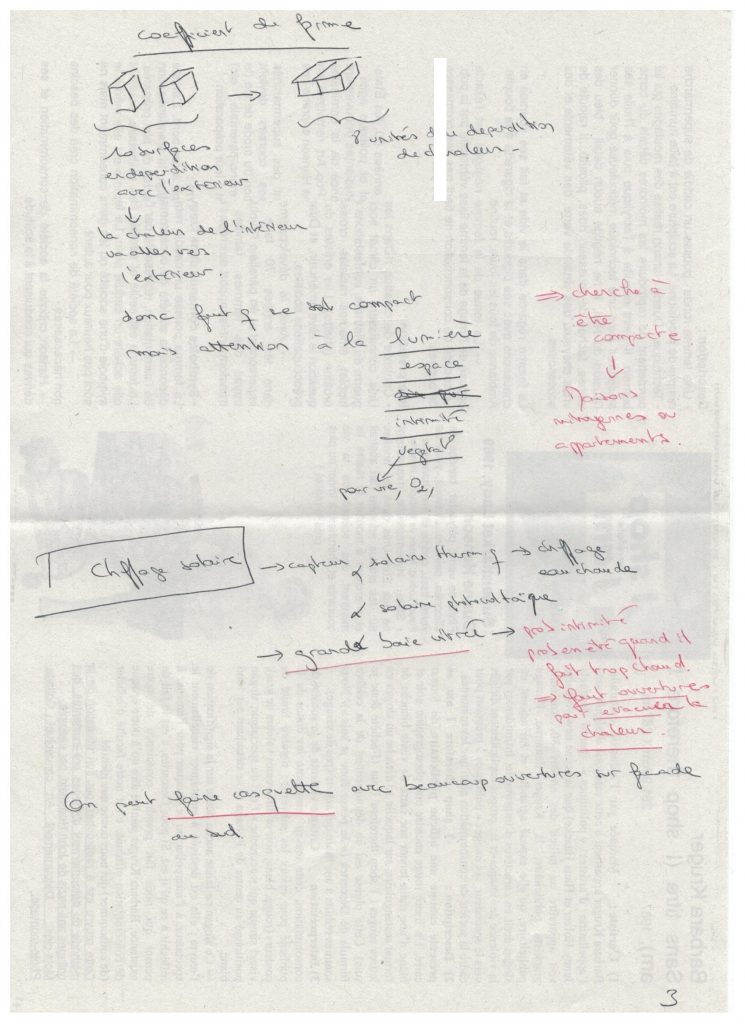 coefficient de forme
→
10 surfaces
en deperdition
avec l'extérieur
↓
la chaleur de l'intérieur
va aller vers
l'extérieur.
8 unités de deperdition
de chaleur -
donc faut q ce soit compact
mais attention à la lumière
espace
intimité
végétal
pour vie, O2,
⇒ cherche à
être
compacte
↓
Maisons
mitoyennes ou
appartements.
Chffage solaire → capteur solaire thermiq → chffage
eau chaude
solaire photovoltaïque
→ grande baie vitrée → prob intimité
prob en été quand il
fait trop chaud.
⇒ faut ouvertures
pour evacuer la
chaleur.
On peut faire casquette avec beaucoup ouvertures sur facade
au sud.
3